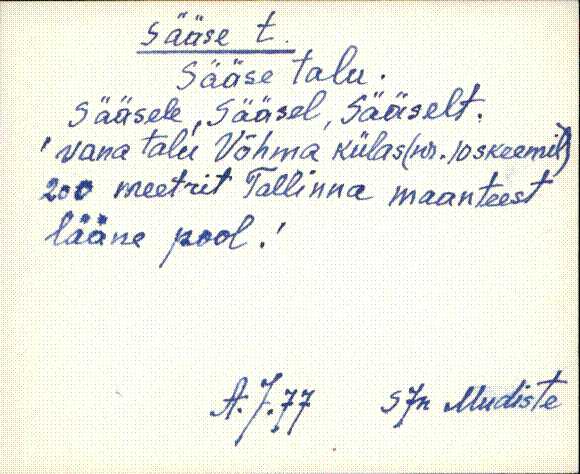 Sääse t.
Sääse talu.
Sääsele, Sääsel, Sääselt.
'vana talu Võhma külas (nr. 10 skeemil)
200 meetrit Tallinna maanteest
lääne pool.'
A.J.77 SJn Mudiste